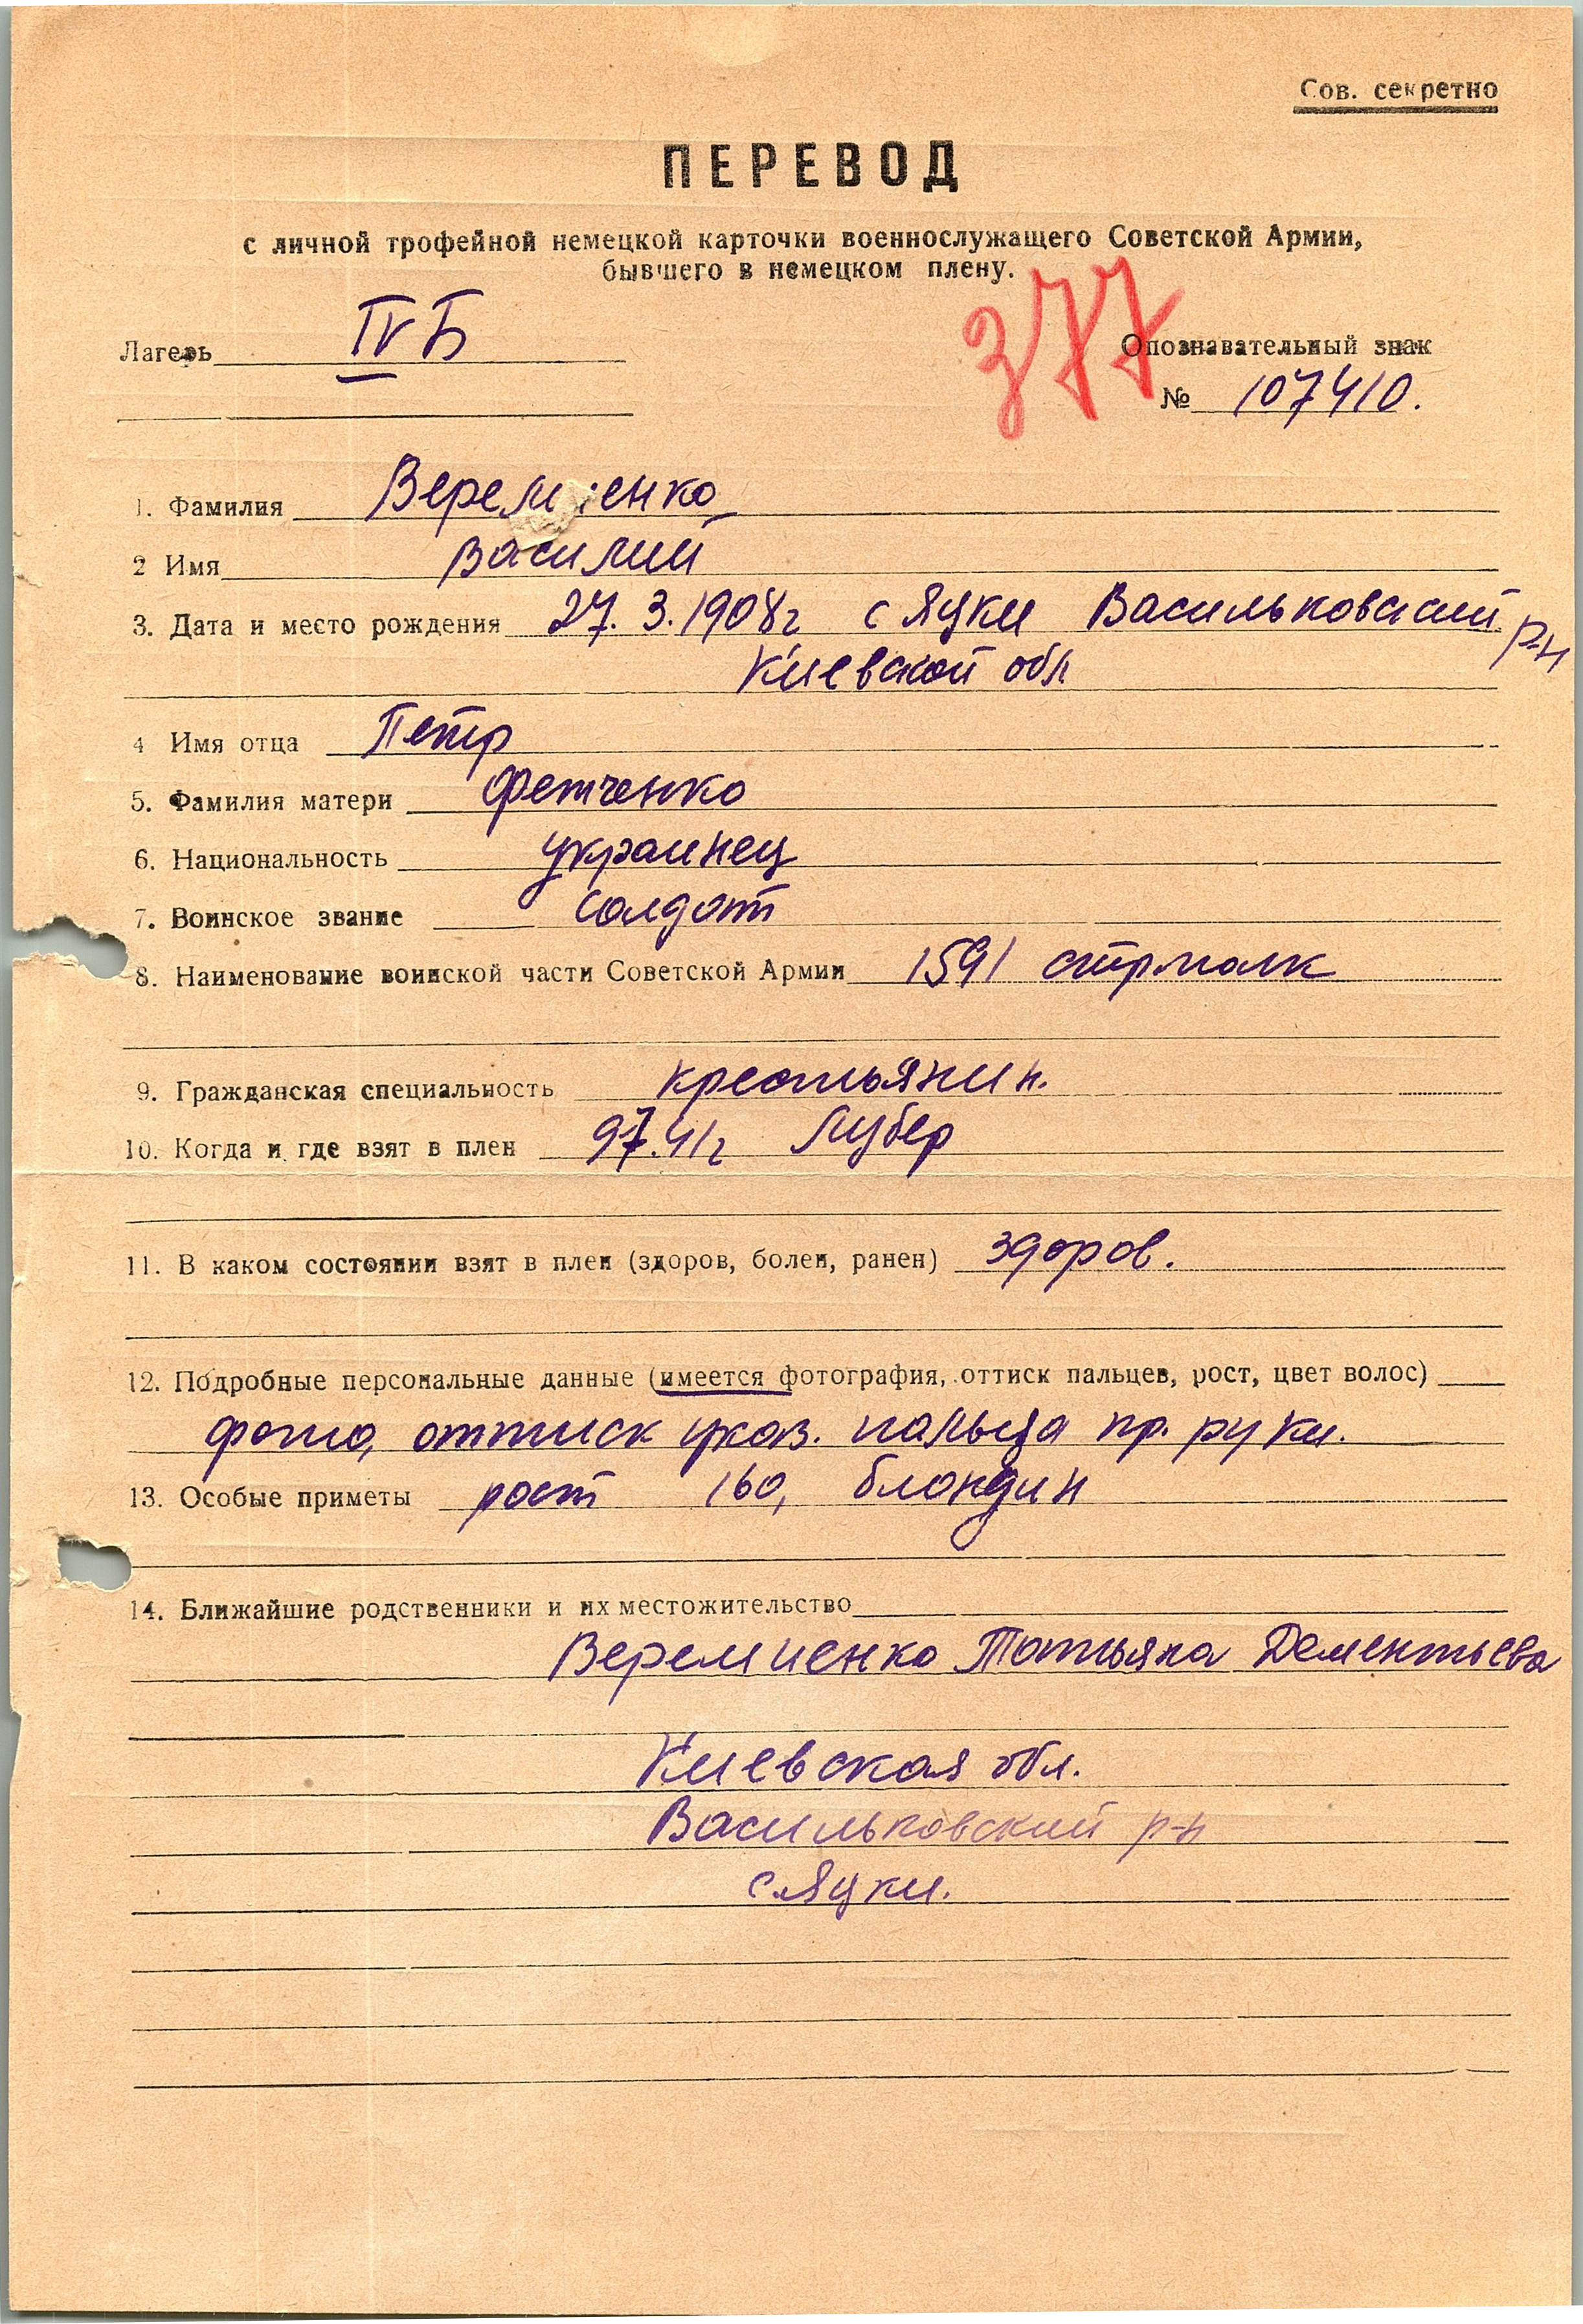 Сов. секретно
ПЕРЕВОД
с личной трофейной немецкой карточки военнослужащего Советской Армии,
бывшего в немецком плену.
377
Лагерь IV Б
Опознавательный знак
№ 107410.
1. Фамилия Веремиенко
2 Имя Василий
3. Дата и место рождения 27.3.1908г с Яцки Васильковский р-н
Киевской обл
4 Имя отца Петр
5. Фамилия матери Фетченко
6. Национальность украинец
7. Воинское звание солдат
8. Наименование воинской части Советской Армии 1591 стрполк
9. Гражданская специальность крестьянин.
10. Когда и где взят в плен 97.41г Лубер
11. В каком состоянии взят в плен (здоров, болен, ранен) здоров.
12. Подробные персональные данные (имеется фотография, оттиск пальцев, рост, цвет волос)
фото, оттиск указ. пальца пр. руки.
13. Особые приметы рост 160, блондин
14. Ближайшие родственники и их местожительство
Веремиенко Татьяна Дементьева
Киевская обл.
Васильковский р-н
с.Яцки.